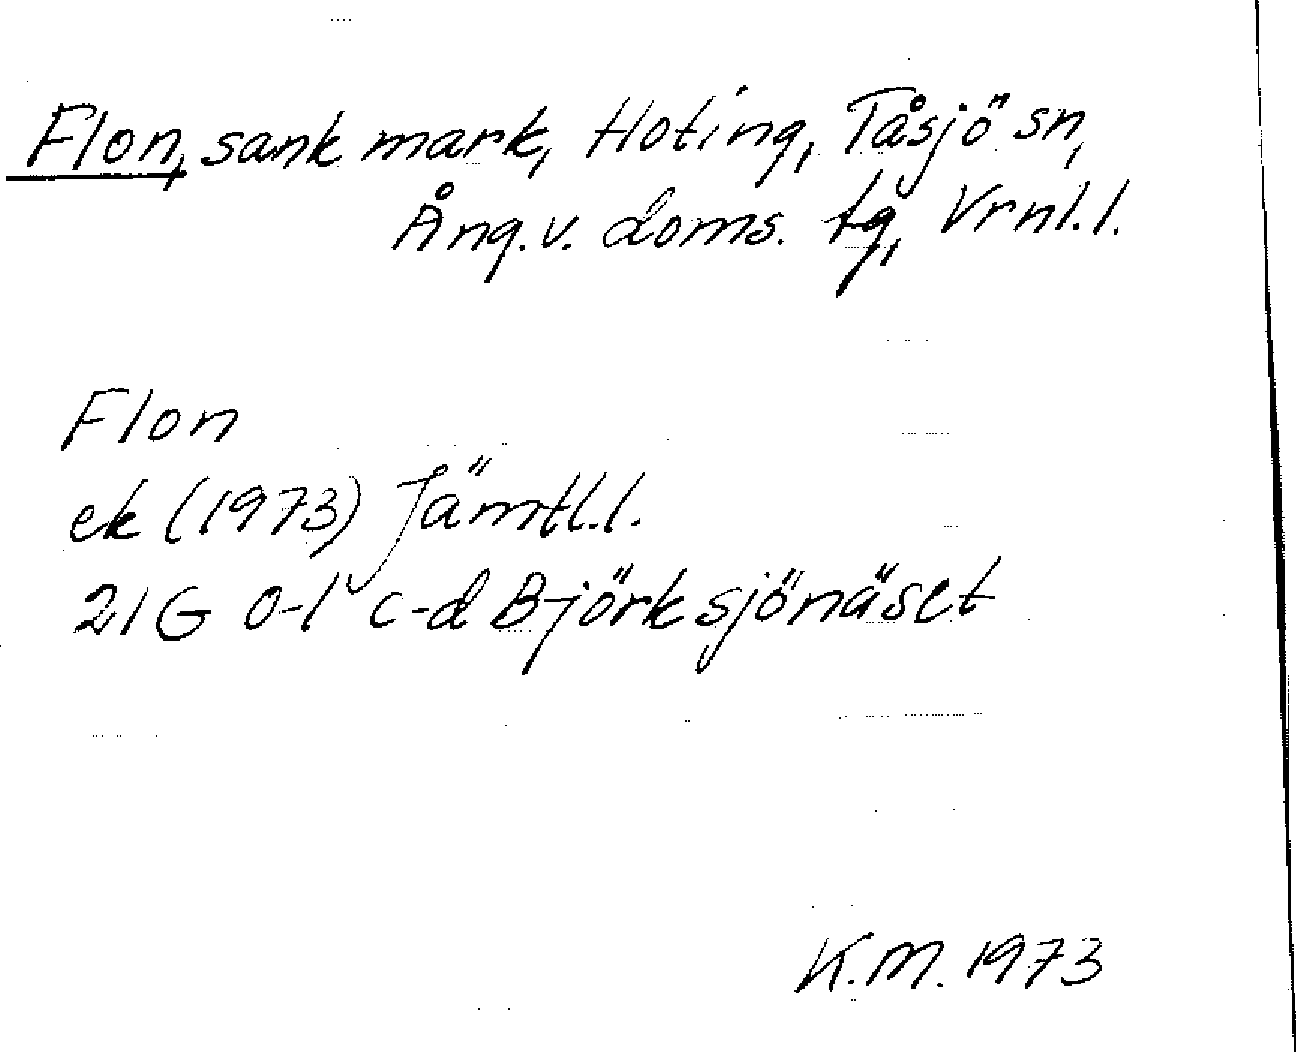 Flon, sank mark, Hoting, Tåsjö sn,
Ång.v. doms. tg, Vrnl.l.
Flon
ek (1973) Jämtl.l.
21G 0-1 c-d Björksjönäset
K.M. 1973